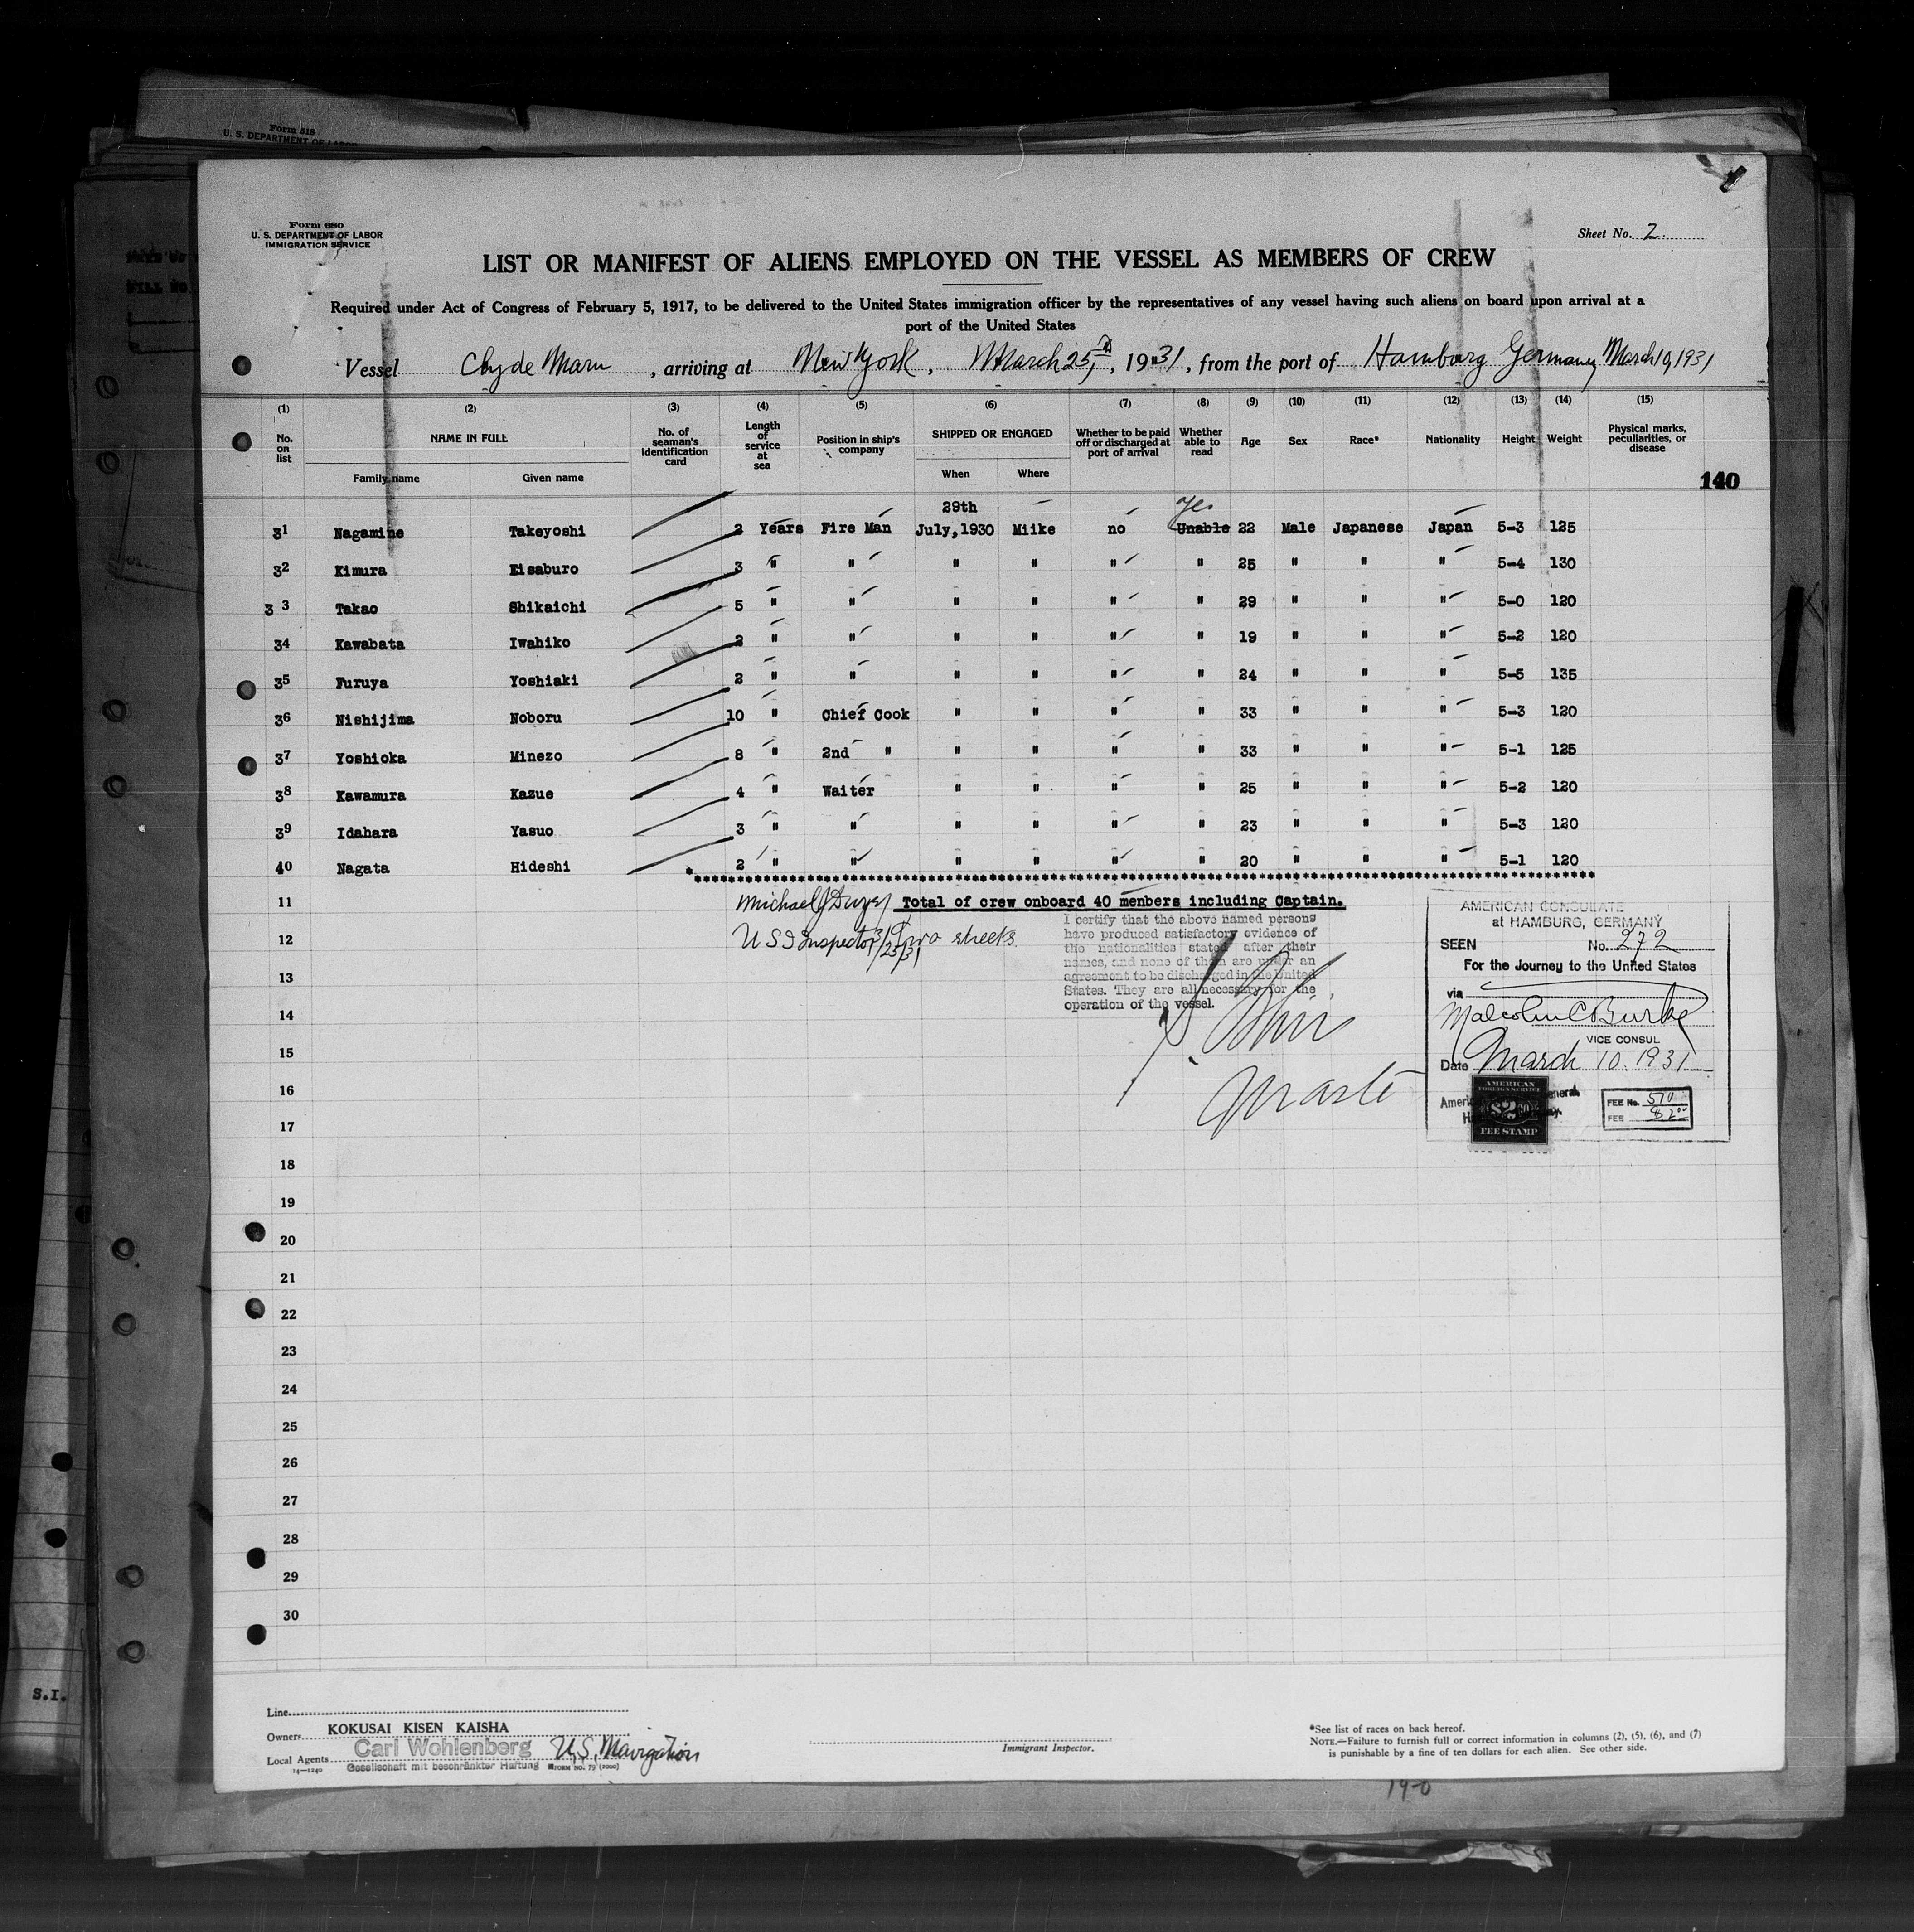 Form 518
U. S. DEPARTMENT OF LABOR
Form 680
U. S. DEPARTMENT OF LABOR
IMMIGRATION SERVICE
Sheet No. 2
LIST OR MANIFEST OF ALIENS EMPLOYED ON THE VESSEL AS MEMBERS OF CREW
Required under Act of Congress of February 5, 1917, to be delivered to the United States immigration officer by the representatives of any vessel having such aliens on board upon arrival at a
port of the United States
Vessel Clyde Maru, arriving at New York, March 25th, 1931, from the port of Hamburg Germany March 10, 1931
(1) (2) (3) (4) (5) (6) (7) (8) (9) (10) (11) (12) (13) (14) (15)
No. on list NAME IN FULL Family name Given name No. of seaman's identification card Length of service at sea Position in ship's company SHIPPED OR ENGAGED When Where Whether to be paid off or discharged at port of arrival Whether able to read Age Sex Race* Nationality Height Weight Physical marks, peculiarities, or disease
140
29th Yes
31 Nagamine Takeyoshi 2 Years Fire Man July, 1930 Miike no Unable 22 Male Japanese Japan 5-3 125
32 Kimura Eisaburo 3 " " " " " " 25 " " " 5-4 130
33 Takao Shikaichi 5 " " " " " " 29 " " " 5-0 120
34 Kawabata Iwahiko 2 " " " " " " 19 " " " 5-2 120
35 Furuya Yoshiaki 2 " " " " " " 24 " " " 5-5 135
36 Nishijima Noboru 10 " Chief Cook " " " " 33 " " " 5-3 120
37 Yoshioka Minezo 8 " 2nd " " " " " 33 " " " 5-1 125
38 Kawamura Kazue 4 " Waiter " " " " 25 " " " 5-2 120
39 Idahara Yasuo 3 " " " " " " 23 " " " 5-3 120
40 Nagata Hideshi 2 " " " " " " 20 " " " 5-1 120
11 Michael J Dwyer Total of crew onboard 40 menbers including Captain.
12 U S I Inspector 3/25/31 Two sheets
I certify that the above named persons
have produced satisfactory evidence of
the nationalities stated after their
names, and none of them are under an
agreement to be discharged in the United
States. They are all necessary for the
operation of the vessel.
Master
AMERICAN CONSULATE
at HAMBURG, GERMANY
SEEN No. 272
For the Journey to the United States
via
Malcolm C Burke
VICE CONSUL
Date March 10. 1931
AMERICAN
FOREIGN SERVICE
$2
FEE STAMP
FEE No. 570
FEE $2.00
13
14
15
16
17
18
19
20
21
22
23
24
25
26
27
28
29
30
S.I.
Line
Owners KOKUSAI KISEN KAISHA
Local Agents Carl Wohlenberg U.S. Navigation
14-1240 Gesellschaft mit beschränkter Haftung FORM NO. 79 (2000)
Immigrant Inspector.
*See list of races on back hereof.
NOTE.—Failure to furnish full or correct information in columns (2), (5), (6), and (7)
is punishable by a fine of ten dollars for each alien. See other side.